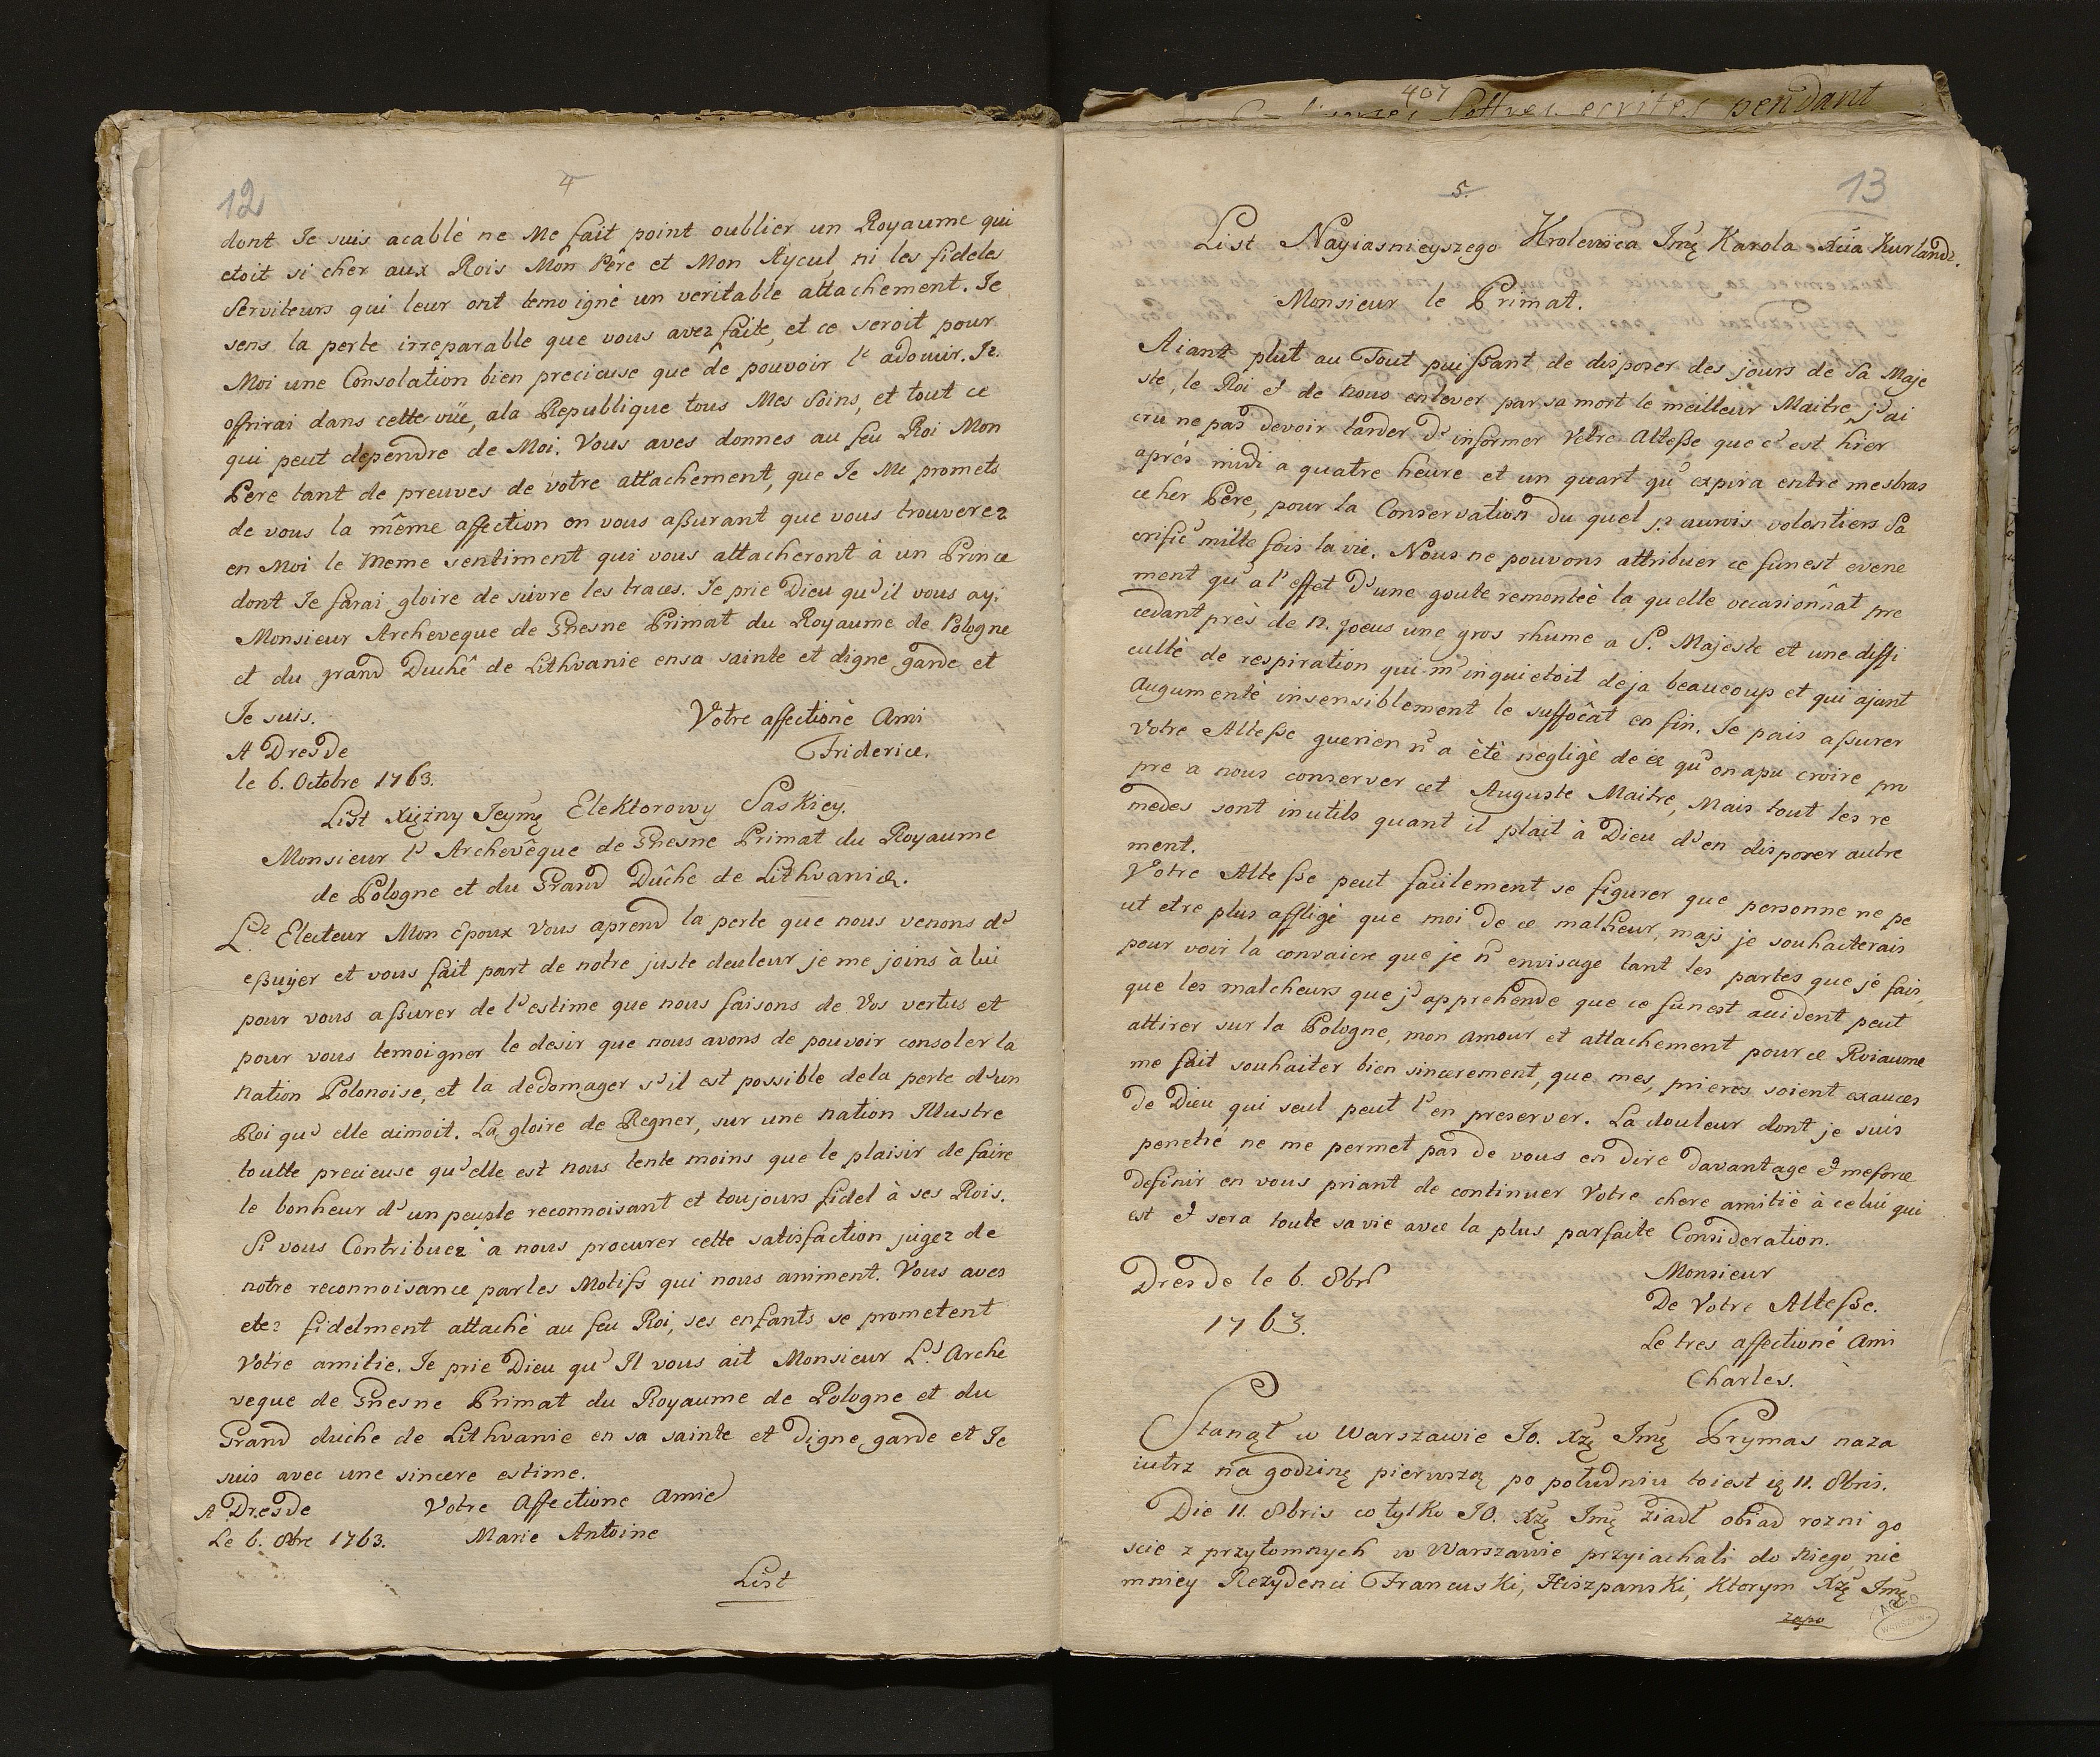 12
4
dont Je suis acablé ne Me fait point oublier un Royaume qui
etoit si cher aux Rois Mon Pére et Mon Ayeul, ni les fideles
Serviteurs qui leur ont temoigné un veritable attachement. Je
sens la perte irreparable que vous avez faite, et ce seroit pour
Moi une Consolation bien precieuse que de pouvoir l'adoucir. Je
offrirai dans cette vüe, ala Republique tous Mes Soins, et tout ce
qui peut dependre de Moi. Vous aves donnes au feu Roi Mon
Pere tant de preuves de vôtre attachement, que Je Me promets
de vous la même affection en vous aßurant que vous trouverez
en Moi le Meme sentiment qui vous attacheront à un Prince
dont Je farai gloire de suivre les traces. Je prie Dieu qu'il vous ay.
Monsieur Archeveque de Gnesne Primat du Royaume de Pologne
et du grand Duchê de Lithvanie ensa sainte et digne garde et
Je suis. Votre affectioné Ami
A Dresde Frideric.
le 6. Octobre 1763.
List Xiężny Jeymę Elektorowy Saskiey.
Monsieur l'Archevêque de Gnesne Primat du Royaume
de Pologne et du Grand Dûche de Lithvanie.
Le Electeur Mon Epoux vous aprend la perte que nous venons d'
eßuyer et vous fait part de notre juste douleur je me joins à lui
pour vous aßurer de l'estime que nous faisons de Vos vertus et
pour vous temoigner le desir que nous avons de pouvoir consoler la
nation Polonoise, et la dedomager s'il est possible dela perte d'un
Roi qu'elle aimoit. La gloire de Regner, sur une nation Illustre
toutte precieuse qu'elle est nous tente moins que le plaisir de faire
le bonheur d'un peuple reconnoisant et toujours fidel à ses Rois.
Si vous Contribuez a nous procurer cette satisfaction jugez de
notre reconnoisance par les Motifs qui nous animent. Vous aves
etez fidelment attaché au feu Roi, ses enfants se prometent
Votre amitie. Je prie Dieu qu'Il vous ait Monsieur L'Arche
veque de Gnesne Primat du Royaume de Pologne et du
Grand duche de Lithvanie en sa sainte et digne garde et Je
suis avec une sincere estime.
A Dresde Votre Affectione Amie
Le 6. 8bre 1763. Marie Antoine
List
407
Lettres ecrites pendant
13
5.
List Nayiasnieyszego Krolewica Jmę Karola Xcia Kurlandz.
Monsieur le Primat.
Aiant plut au Tout puißant de disposer des jours de Sa Maje
ste, le Roi et de nous enlever par sa mort le meilleur Maitre j'ai
crû ne pas devoir tarder d'informer Vetre Alteße que c'est hier
aprés midi a quatre heure et un quart qu'expira entre mes bras
ce her Pere, pour la Conservation du quel j'aurois volontiers Sa
crifié mille fois la vie. Nous ne pouvons attribuer ce funest evene
ment qu'a l'effet d'une goute remonteè la quelle occasionnât pre
cedant près de 12. joeus une gros rhume a S. Majeste et une diffi
cultè de respiration qui m'inquietoit deja beaucoup et qui ajant
Augumentè insensiblement le suffocât en fin. Je pais aßurer
Votre Alteße querien n'a ètè negligè de ce qu'onapu croire pro
pre a nous conserver cet Auguste Maitre, Mais tout les re
medes sont inutils quant il plait à Dieu d'en disposer autre
ment.
Votre Alteße peut facilement se figurer que personne ne pe
ut etre plus affligé que moi de ce malheur, majs je souhaiterais
pour voir la convaicre que je n'envisage tant les partes que je fais,
que les malcheurs que j'apprehende que ce funest accident peut
attirer sur la Pologne, mon amour et attachement pour ce Roiaume
me fait souhaiter bien sincerement, que mes, prieres soient exauces
de Dieu qui seul peut l'en preserver. La douleur dont je suis
penetré ne me permet pas de vous en dire davantage et me force
definir en vous priant de continuer Votre chere amitié à celui qui
est et sera toute sa vie avec la plus parfaite Consideration.
Dresde le 6. 8br Monsieur
1763. De Votre Alteße.
Le tres affectioné Ami
Charles.
Stanął w Warszawie Jo. Xzę Jmę Prymas naza
iutrz na godzinę pierwszą po południu toiest ię 11. 8bris.
Die 11. 8bris co tylko JO. Xzę Jmę ziadł obiad rozni go
scie z przytomnych w Warszawie przyiachali do niego, nie
mniey Rezydenci Francuski, Hiszpanski, ktorym Xzę Jmę
zapo